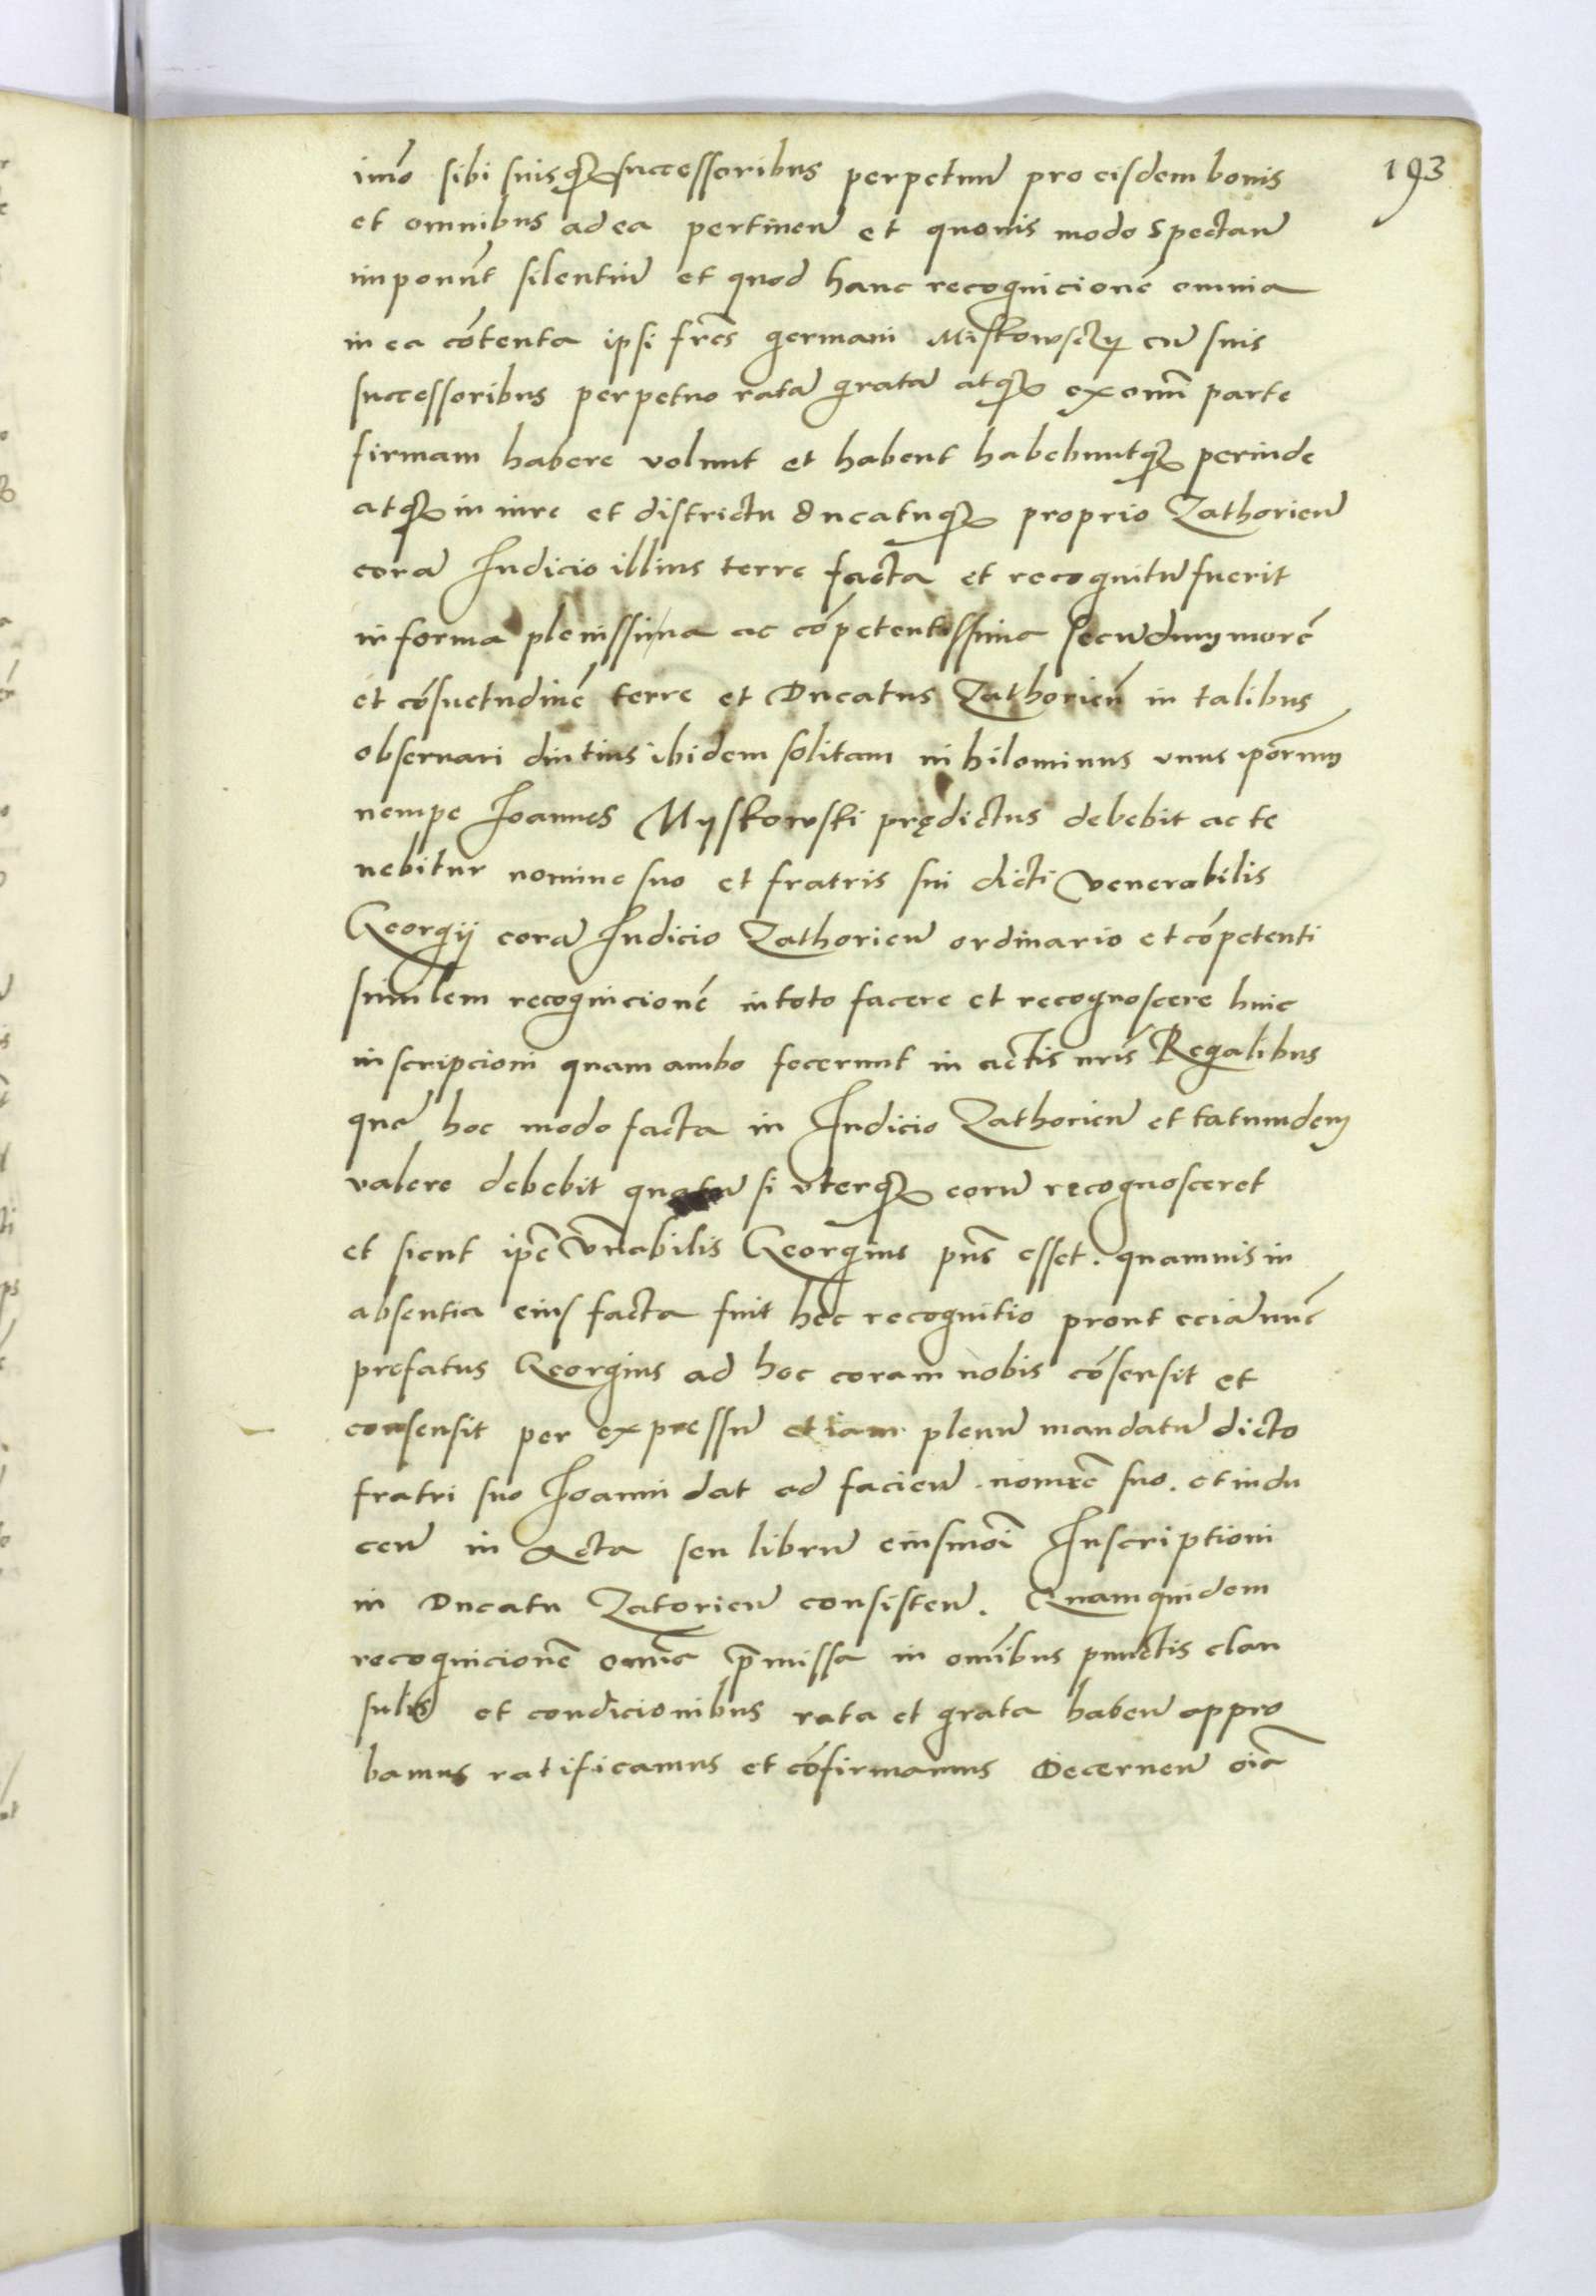 193
imo sibi suisq successoribus perpetuu pro eisdem bonis
et omnibus ad ea pertinen et quouis modo spectan
imponut silentiu et quod hanc recognicione omnia
in ea cotenta ipsi fres germani Miskowsczy cu suis
successoribus perpetuo rata grata atq ex omni parte
firmam habere volunt et habent habebuntq perinde
atq in iure et districtu ducatuq proprio Zathorien
cora Iudicio illius terre facta et recognitu fuerit
in forma plenissima ac copetentissima secundum more
et cosuetudine terre et Ducatus Zathorien in talibus
obseruari diutius ibidem solitam nihilominus vnus iporum
nempe Ioannes Myskowski prędictus debebit ac te
nebitur nomine suo et fratris sui dicti venerabilis
Georgij cora Iudicio Zathorien ordinario et copetenti
similem recognicione in toto facere et recognoscere huic
inscripcioni quam ambo fecerunt in actis nris Regalibus
que hoc modo facta in Iudicio Zathorien et tatumdem
valere debebit quatu si vterq eoru recognosceret
et sicut ipe vnabilis Georgius pns esset. quamuis in
absentia eius facta fuit hec recognitio prout ecia nuc
prefatus Georgius ad hoc coram nobis cosensit et
consensit per expressu etiam plenu mandatu dicto
fratri suo Ioanni dat ad facien nomie suo. et indu
cen in Acta seu libru eiusmoi Inscriptioni
in Ducatu Zatorien consisten. Quamquidem
recognicione omia pmissa in omibus punctis clau
sulis et condicionibus rata et grata haben appro
bamus ratificamus et cofirmamus Decernen oia